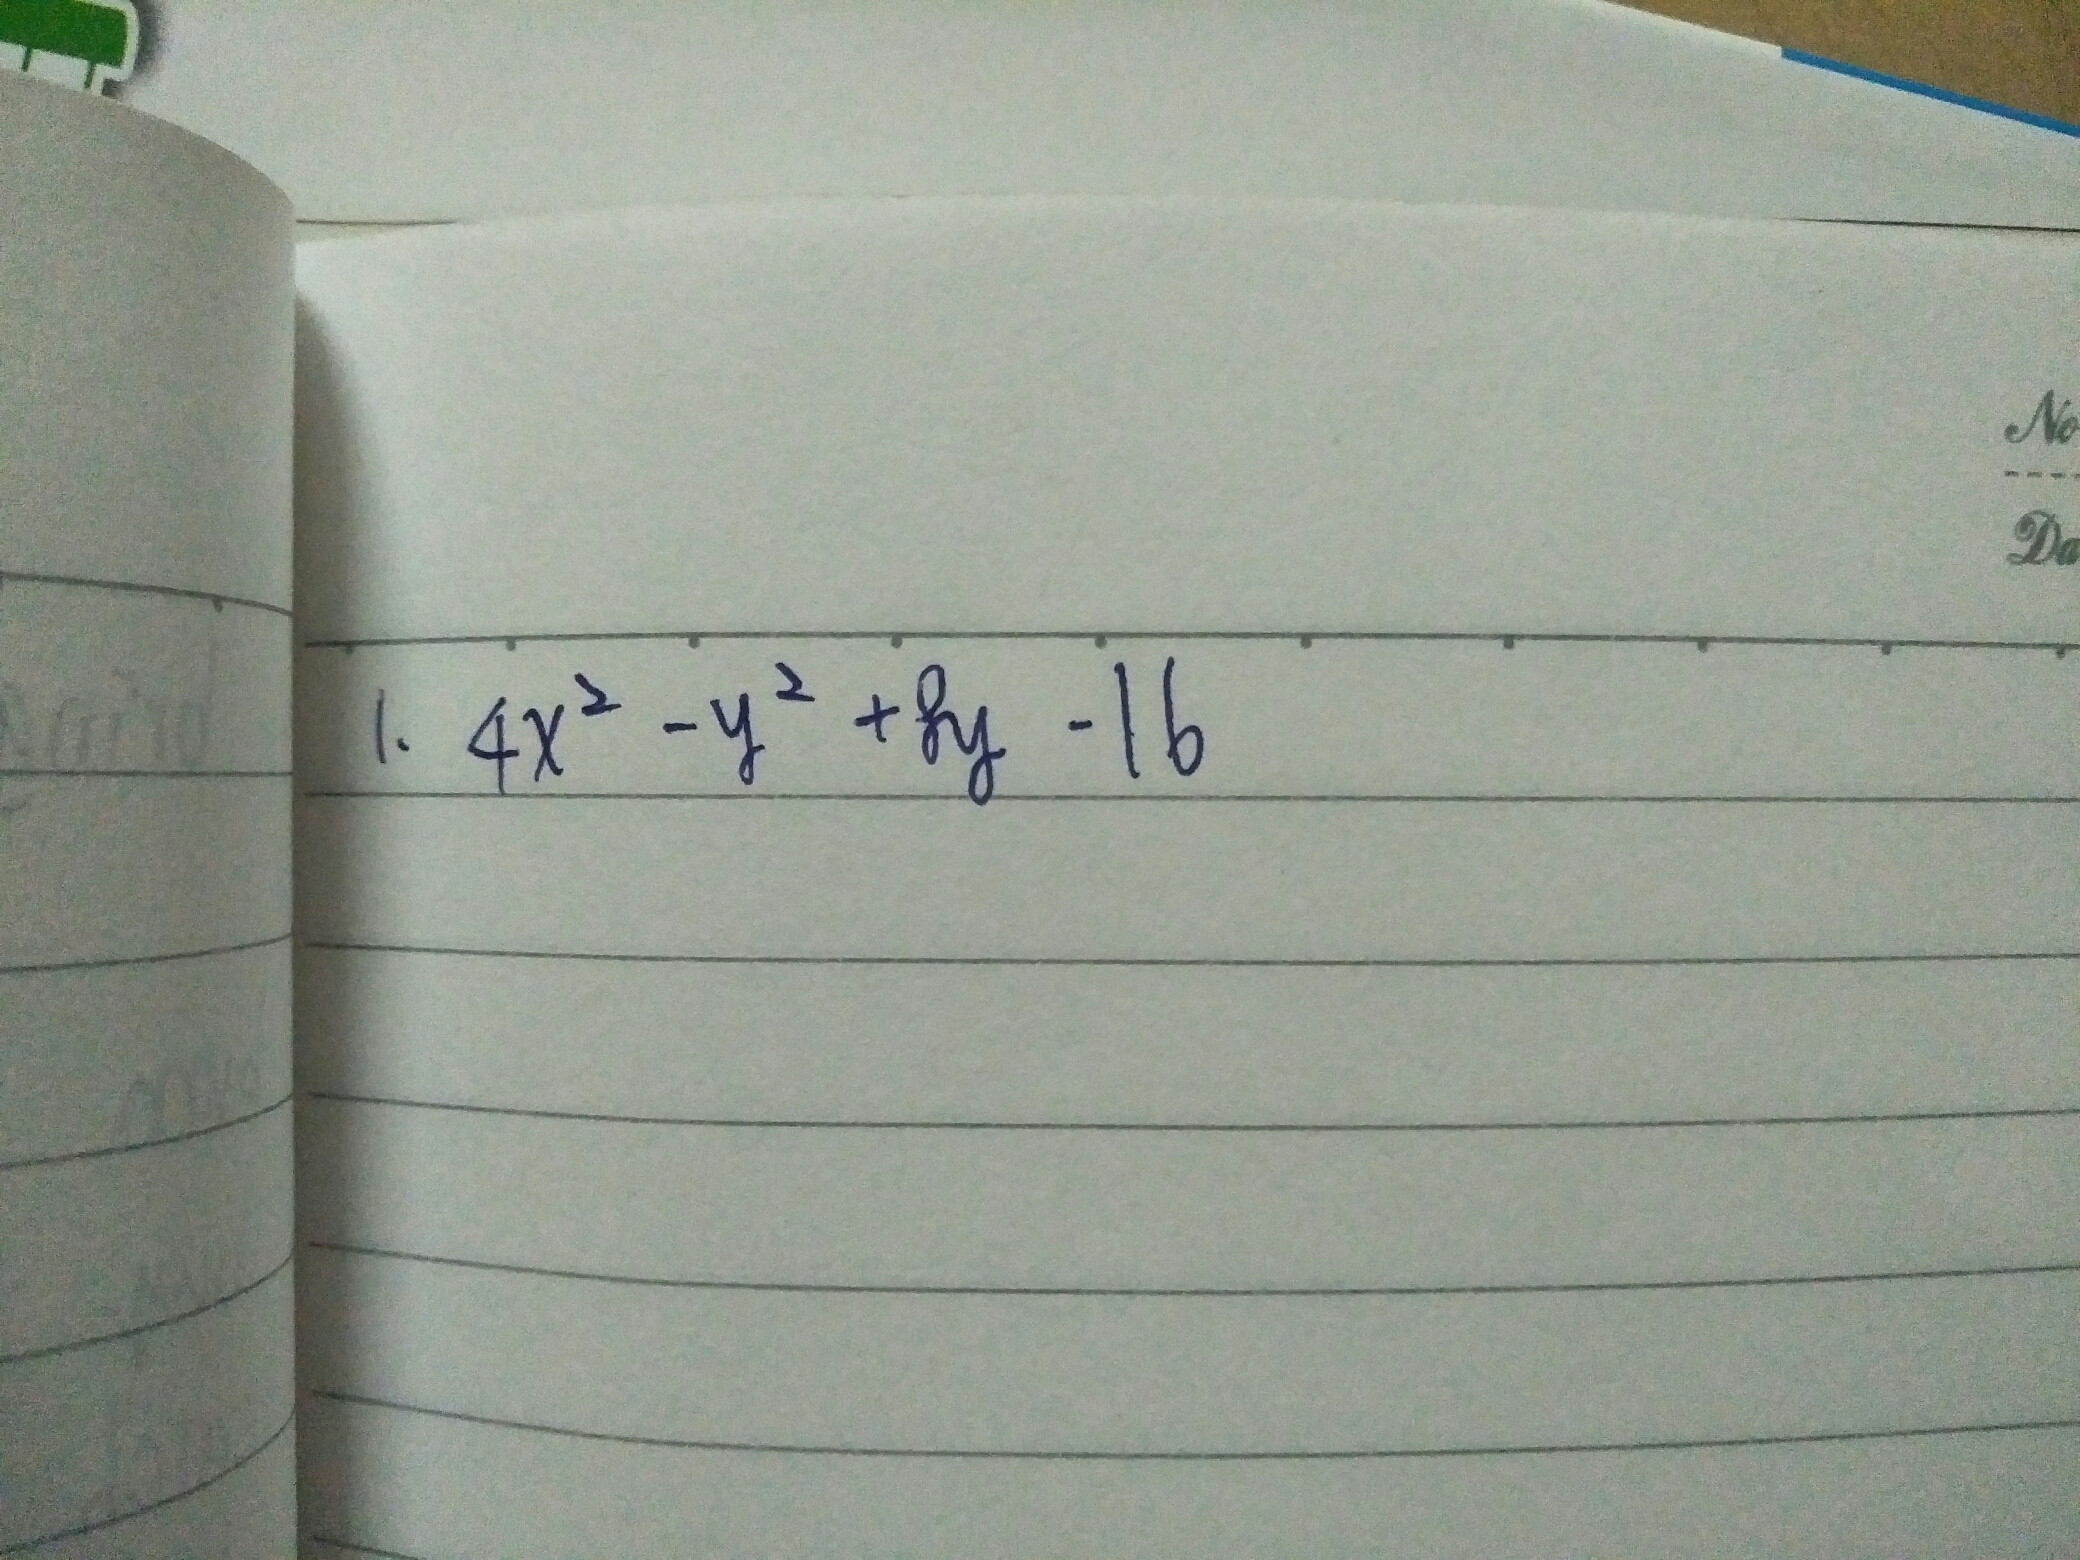 No
Da
1. 4x² -y² +8y -16